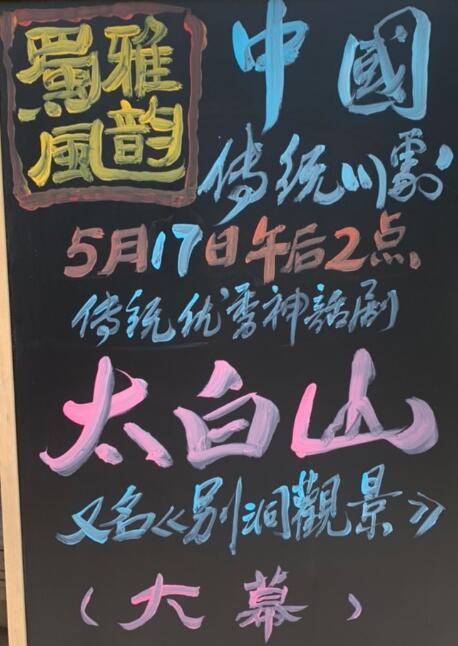 蜀風雅韵
中國
传统川剧
5月17日午后2点
传统优秀神話剧
太白山
又名《别洞觀景》
（大幕）